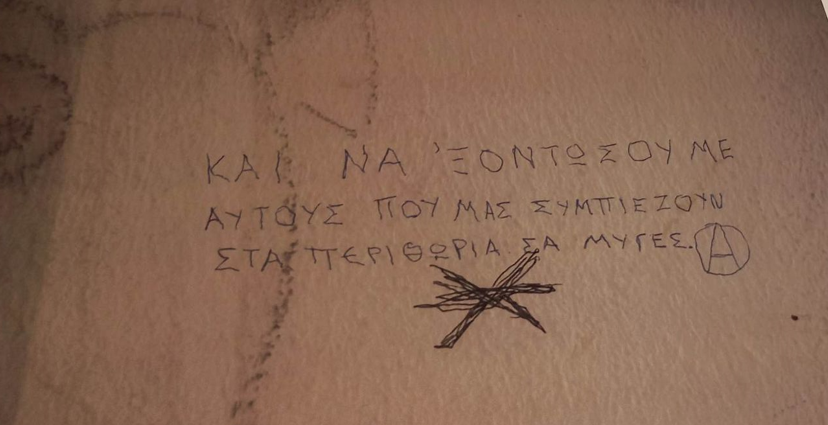 ΚΑΙ ΝΑ 'ΞΟΝΤΩΣΟΥΜΕ
ΑΥΤΟΥΣ ΠΟΥ ΜΑΣ ΣΥΜΠΙΕΖΟΥΝ
ΣΤΑ ΠΕΡΙΘΩΡΙΑ ΣΑ ΜΥΓΕΣ. Ⓐ